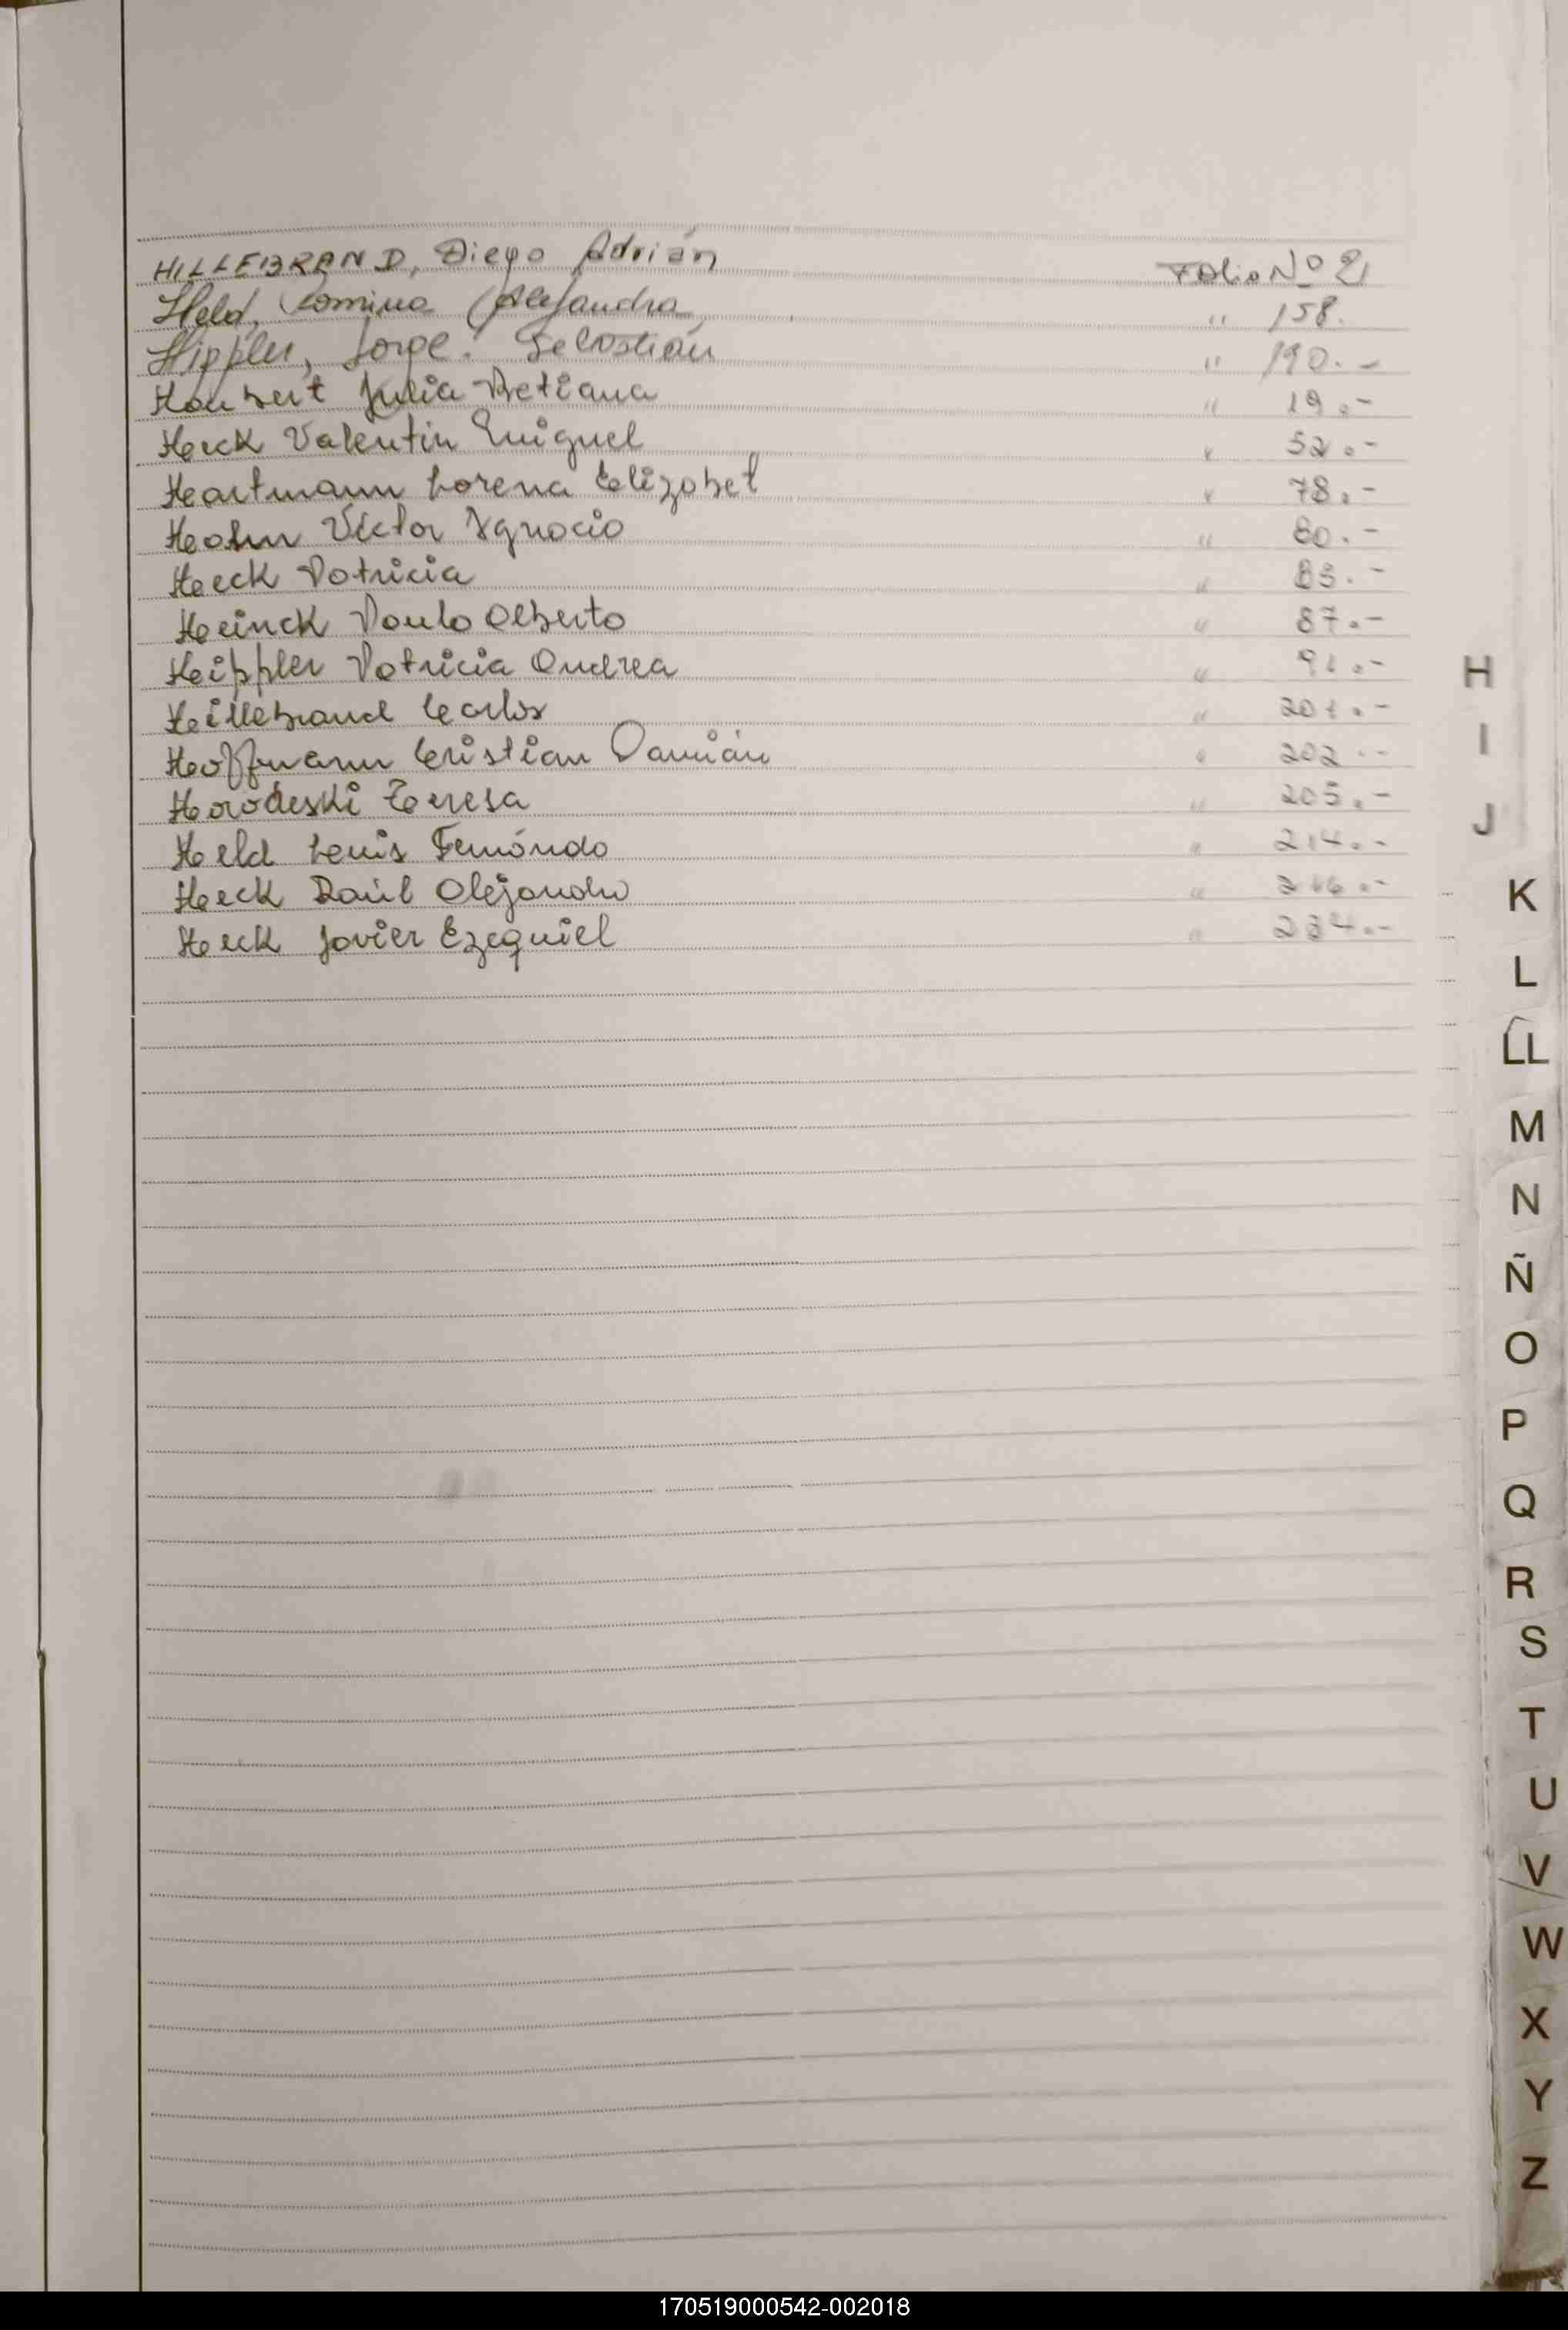 HILLEBRAND, Diego Adrián Folio Nº 21
Held, Romina Alejandra " 158.
Hippler, Jorge Sebastián " 190.-
Haubert Julia Betiana " 19.-
Heck Valentin Miguel " 52.-
Hartmann Lorena Elizabet " 78.-
Hahn Victor Ygnacio " 80.-
Heck Patricia " 83.-
Heinck Paulo Alberto " 87.-
Heippler Patricia Andrea " 91.-
Heillebrand Carlos " 201.-
Hoffmann Cristian Damián " 202.-
Horodeski Teresa " 205.-
Held Luis Fernándo " 214.-
Heck Raúl Alejandro "
Heck Javier Ezequiel " 234.-
H
I
J
K
L
LL
M
N
Ñ
O
P
Q
R
S
T
U
V
W
X
Y
Z
170519000542-002018